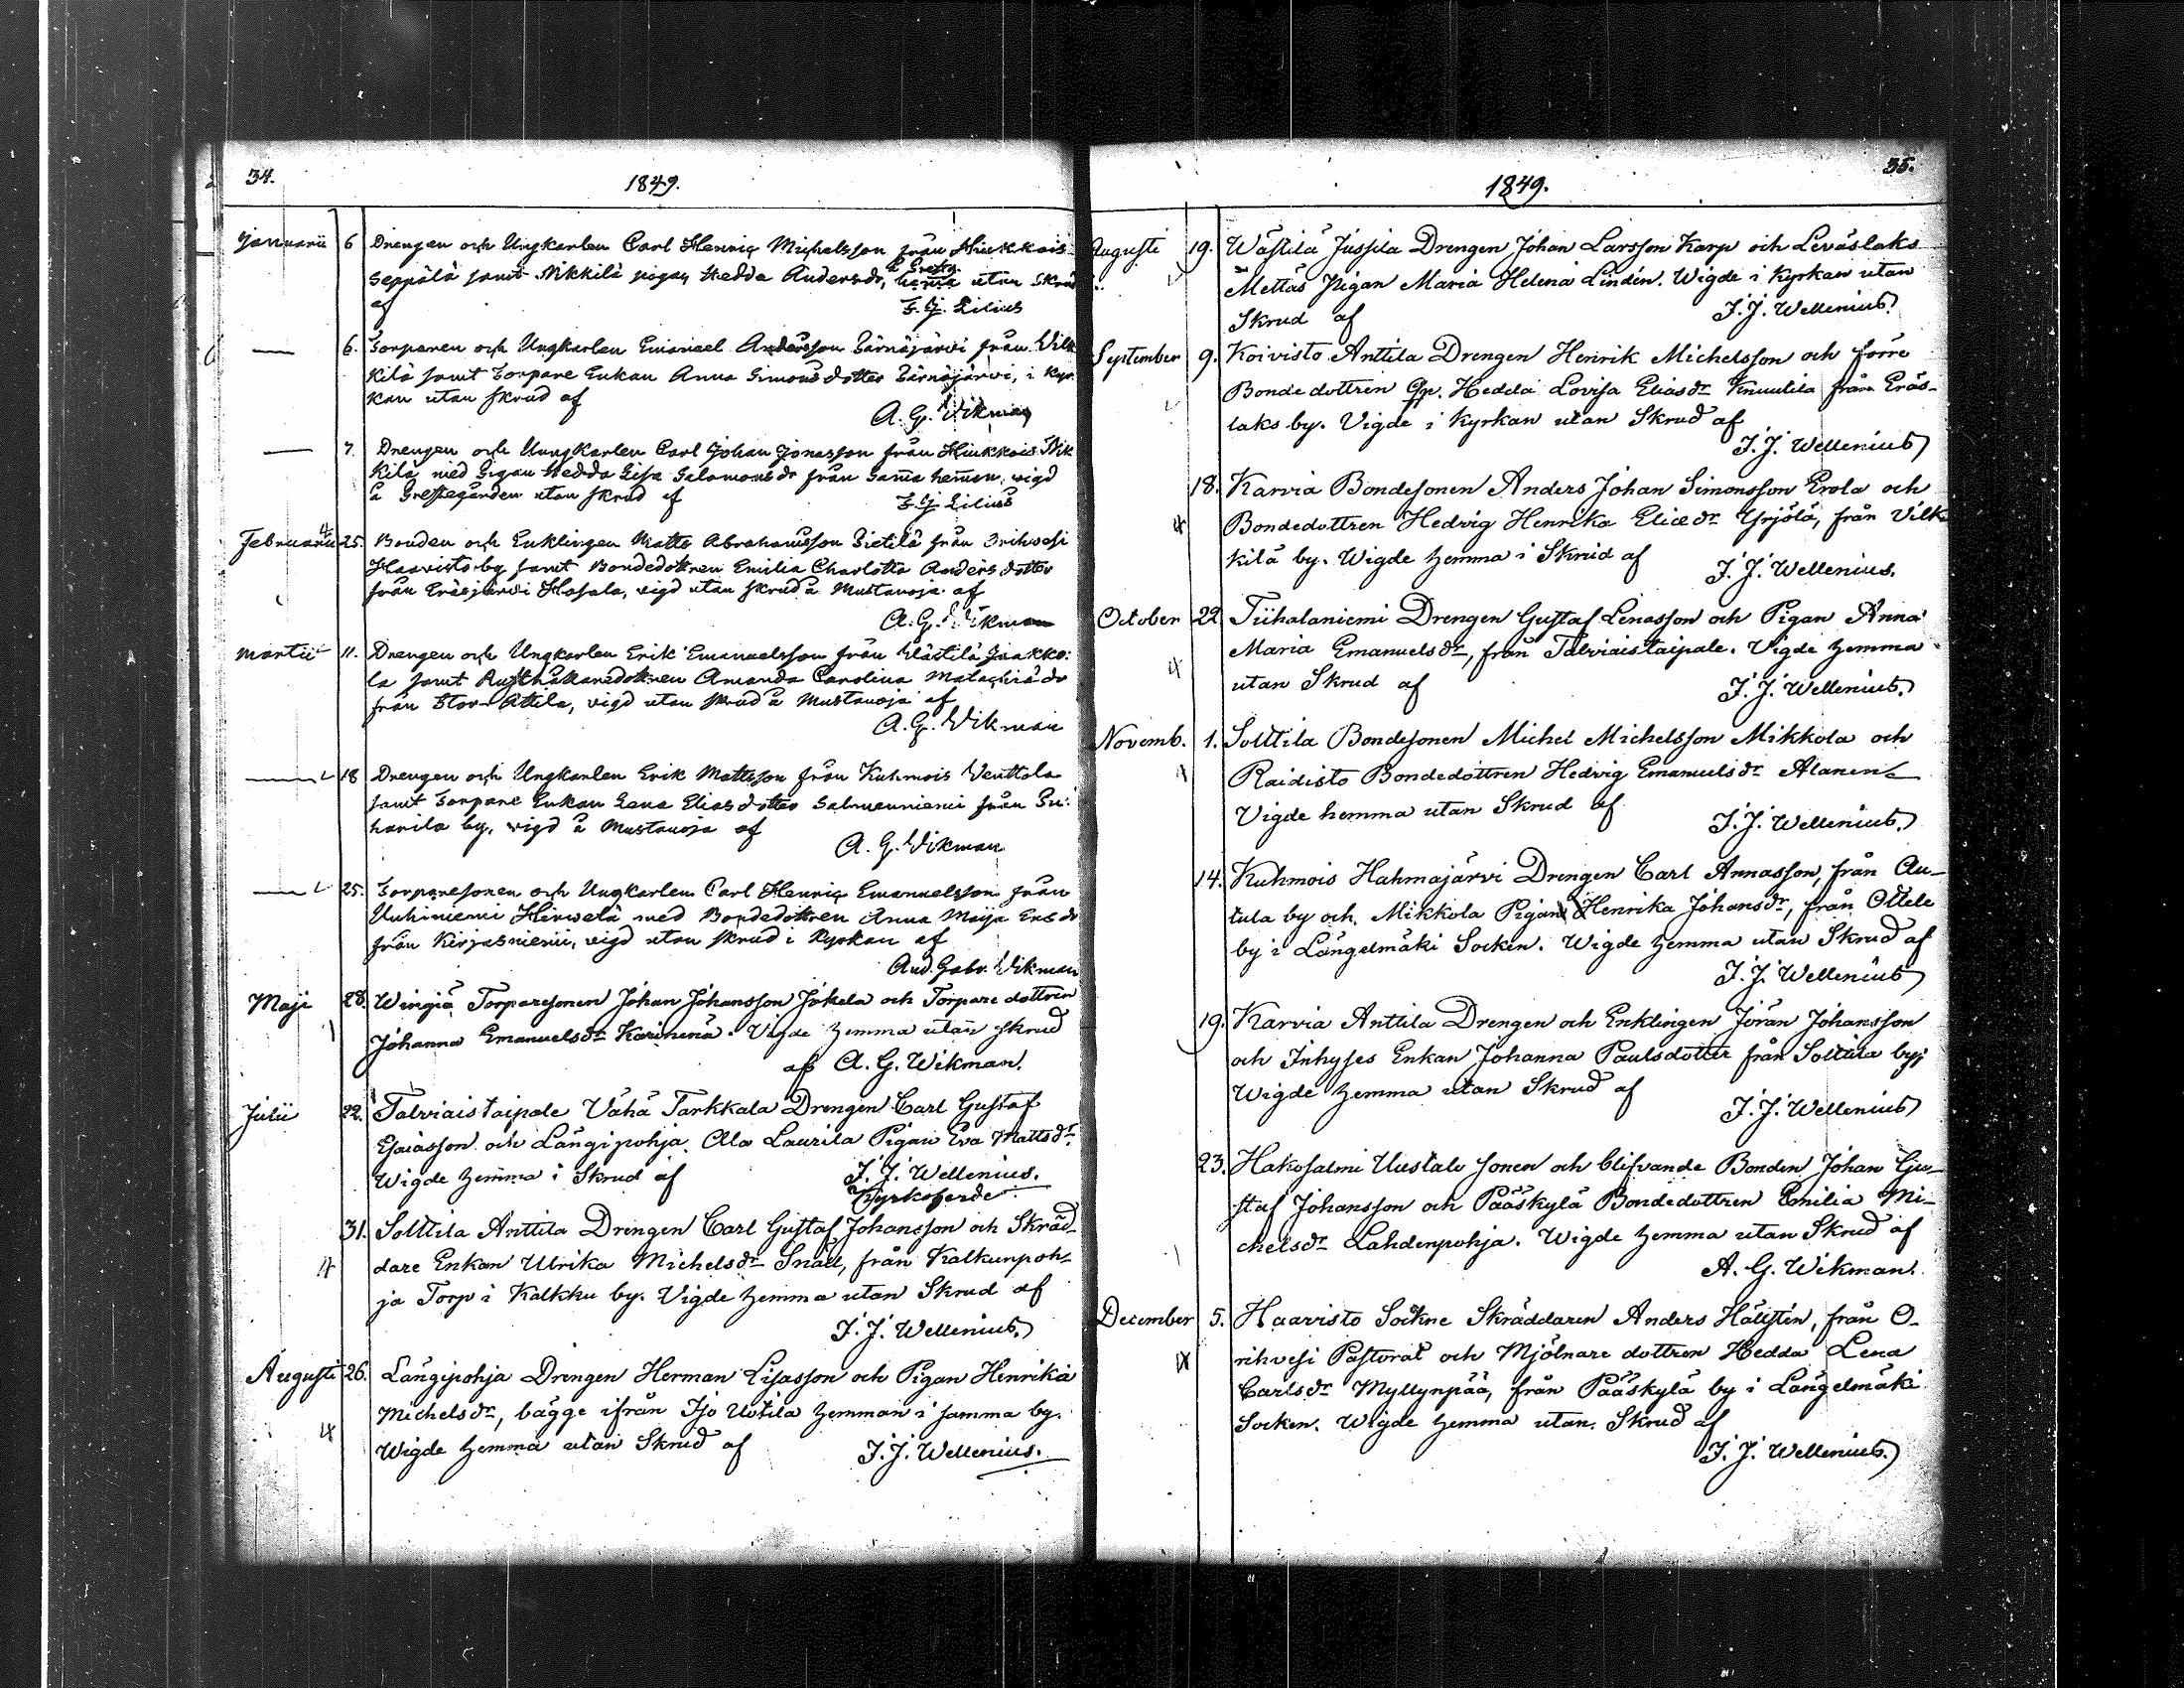 34.
1849.
Januarii 6 Drengen och Ungkarlen Carl Henric Michelsson från Hiukkois
Seppälä samt Nikkilä pigan Hedda Andersdr, hemma utan Skrud
å Prestg.
af F. J. Lilius
— 6. Torparen och Ungkarlen Emanuel Andersson Särnäjärvi från Vilk
kilä samt Torpare Enkan Anna Simons dotter Särnäjärvi, i Kyr-
kan utan skrud af
A. G. Vikman
— 7. Drengen och Ungkarlen Carl Johan Jonasson från Hiukkois Nik
kilä med Pigan Hedda Lisa Salomonsdr från samma hemman, vigd
å Prestegården utan skrud af F. J. Lilius
Februarii 25. Bonden och Enklingen Matts Abrahamsson Pietilä från Orihvesi
Haavisto by samt Bondedottren Emilia Charlotta Anders dotter
från Eräsjärvi Hasala, vigd utan skrud å Mustanoja af
A. G. Vikman
Martii 11. Drengen och Ungkarlen Erik Emanuelsson från Västilä Jaakko:
la samt Rusthållaredottren Amanda Carolina Malachiædr
från Stor-Attila, vigd utan skrud å Mustanoja af
A. G. Vikman
— 18 Drengen och Ungkarlen Erik Mattsson från Kuhmois Venttola
samt Torpare Enkan Lena Elias dotter Salmenniemi från Pu:
harila by, vigd å Mustanoja af
A. G. Vikman
— 25. Torparesonen och Ungkarlen Carl Henric Emanuelsson från
Uuhiniemi Hirvelä med Bondedottren Anna Maija Ersdr
från Kirjasniemi, vigd utan skrud i Kyrkan af
And. Gabr. Vikman
Maji 28. Wingiä Torparesonen Johan Johansson Jokela och Torpare dottren
Johanna Emanuelsdr Karinenä. Vigde hemma utan skrud
af A. G. Wikman.
Julii 22. Talviaistaipale Vähä Tarkkala Drengen Carl Gustaf
Esaiasson och Längipohja Ala Laurila Pigan Eva Mattsdr.
Wigde hemma i Skrud af J. J. Wellenius.
Kyrkoherde
31. Solttila Anttila Drengen Carl Gustaf Johansson och Skräd-
dare Enkan Ulrika Michelsdr Snäll, från Kalkunpoh-
ja Torp i Kalkku by. Vigde hemma utan Skrud af
J. J. Wellenius.
Augusti 26. Längipohja Drengen Herman Lisasson och Pigan Henrika
Michelsdr, bägge ifrån Iso Uotila hemman i samma by.
Wigde hemma utan Skrud af J. J. Wellenius.
35.
1849.
Augusti 19. Wästilä Jussila Drengen Johan Larsson Karp och Leväslaks
Mettäs Pigan Maria Helena Lindén. Wigde i Kyrkan utan
Skrud af J. J. Wellenius.
September 9. Koivisto Anttila Drengen Henrik Michelsson och förre
Bonde dottren Qp. Hedda Lovisa Eliasdr Knuutila från Eräs-
laks by. Vigde i Kyrkan utan Skrud af
J. J. Wellenius
18. Karvia Bondesonen Anders Johan Simonsson Erola och
Bondedottren Hedvig Henrika Eliædr Yrjölä, från Vilk-
kilä by. Wigde hemma i Skrud af J. J. Wellenius.
October 22 Tiihalaniemi Drengen Gustaf Lenasson och Pigan Anna
Maria Emanuelsdr, från Talviaistaipale. Vigde hemma
utan Skrud af J. J. Wellenius.
Novemb. 1. Solttila Bondesonen Michel Michelsson Mikkola och
Raidisto Bondedottren Hedvig Emanuelsdr Alanen
Vigde hemma utan Skrud af
J. J. Wellenius.
14. Kuhmois Hahmajärvi Drengen Carl Annasson, från Au-
tula by och Mikkola Pigan Henrika Johansdr, från Ottele
by i Längelmäki Socken. Wigde hemma utan Skrud af
J. J. Wellenius
19. Karvia Anttila Drengen och Enklingen Jöran Johansson
och Inhyses Enkan Johanna Paulsdotter från Solttila by;
Wigde hemma utan Skrud af
J. J. Wellenius
23. Hakosalmi Uustalo sonen och blifvande Bonden Johan Gu-
staf Johansson och Pääskylä Bondedottren Emilia Mi-
chelsdr Lahdenpohja. Wigde hemma utan Skrud af
A. G. Wikman.
December 5. Haavisto Sockne Skräddaren Anders Hällstén, från O-
rihvesi Pastorat och Mjölnare dottren Hedda Lena
Carlsdr Myllynpää, från Pääskylä by i Längelmäki
Socken. Wigde hemma utan Skrud af
J. J. Wellenius.